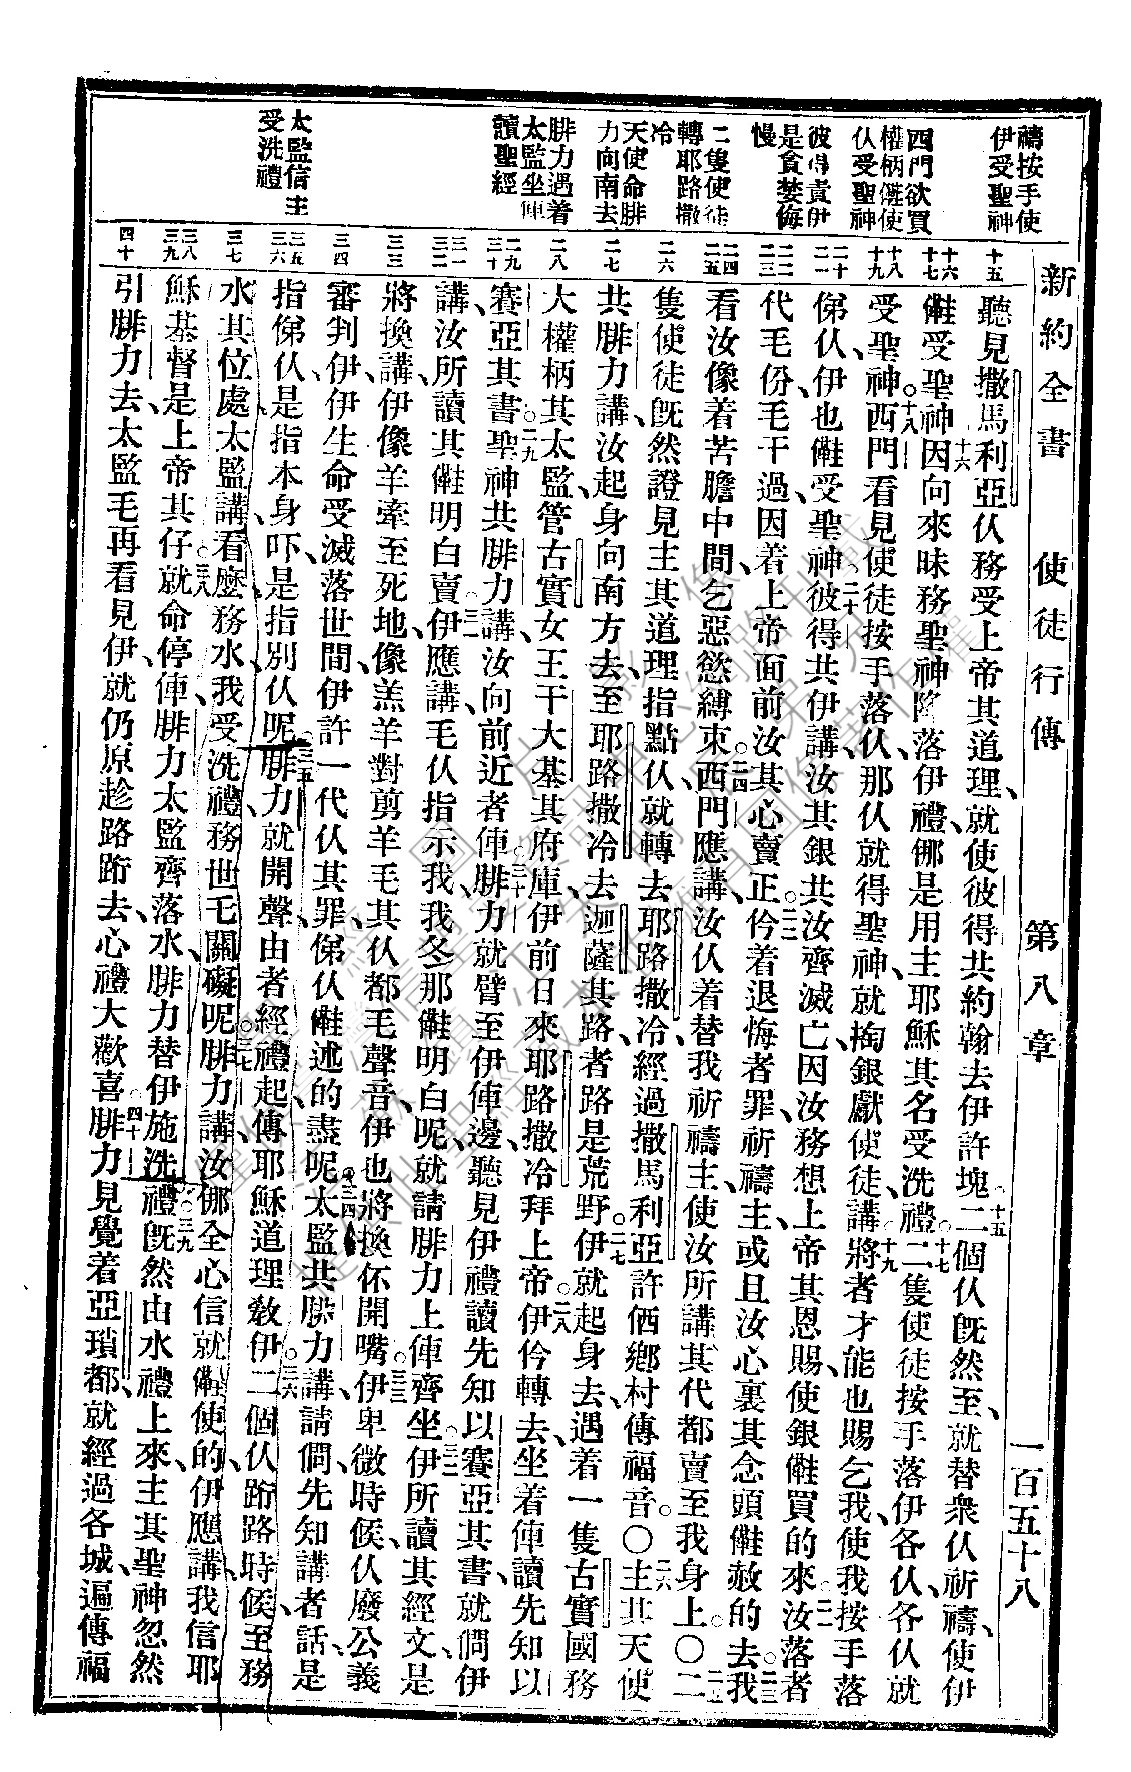 新約全書　使徒行傳　第八章　一百五十八
禱按手使
伊受聖神
西門欲買
權柄𠆧使
仈受聖神
彼得責伊
是貪婪侮
慢
二隻使徒
轉耶路撒
冷
天使命腓
力向南去
腓力遇着
太監坐俥
讀聖經
太監信主
受洗禮
十五
十六
十七
十八
十九
二十
二一
二二
二三
二四
二五
二六
二七
二八
二九
三十
三一
三二
三三
三四
三五
三六
三七
三八
三九
四十
聽見撒馬利亞仈務受上帝其道理、就使彼得共約翰去伊許塊、十五二個仈旣然至、就替衆仈祈禱、使伊
受聖神、十六因向來昧務聖神降落伊禮、㑚是用主耶穌其名受洗禮、十七二隻使徒按手落伊各仈、各仈就
受聖神。十八西門看見使徒按手落仈、那仈就得聖神、就掏銀獻使徒、講、十九將者才能也賜乞我、使我按手落
仈、伊也受聖神、二十彼得共伊講、汝其銀共汝齊滅亡、因汝務想上帝其恩賜、使銀買的來、二一汝落者
代毛份毛干過、因着上帝面前汝其心賣正、二二仱着退悔者罪、祈禱主、或且汝心裏其念頭赦的去、二三我
看汝像着苦膽中間、乞惡慾縛束。二四西門應講、汝仈着替我祈禱主、使汝所講其代都賣至我身上。〇二五二
隻使徒旣然證見主其道理、指點仈、就轉去耶路撒冷、經過撒馬利亞許偭鄉村傳福音。〇二六主其天使
共腓力講、汝起身向南方去、至耶路撒冷去迦薩其路、者路是荒野、二七伊就起身去、遇着一隻古實國務
大權柄其太監、管古實女王干大基其府庫、伊前日來耶路撒冷拜上帝、二八伊仱轉去、坐着俥讀先知以
賽亞其書、二九聖神共腓力講、汝向前近者俥、三十腓力就躄至伊俥邊、聽見伊禮讀先知以賽亞其書、就問伊
講、汝所讀其明白賣、三一伊應講、毛仈指示我、我冬那明白呢、就請腓力上俥齊坐、三二伊所讀其經文、是
將換講、伊像羊牽至死地、像羔羊對剪羊毛其仈都毛聲音、伊也將換伓開嘴、三三伊卑微時候、仈廢公義
審判伊、伊生命受滅落世間、伊許一代仈其罪、俤仈述的盡呢、三四太監共腓力講、請問先知講者話、是
指俤仈、是指本身吓、是指別仈呢、三五腓力就開聲、由者經禮起、傳耶穌道理敎伊、三六二個仈跲路時候、至務
水其位處、太監講、看麼務水、我受洗禮務世乇關礙呢、三七腓力講、汝㑚全心信就使的、伊應講、我信耶
穌基督是上帝其仔、三八就命停俥、腓力太監齊落水、腓力替伊施洗禮、三九旣然由水禮上來、主其聖神忽然
引腓力去、太監毛再看見伊、就仍原趁路跲去、心禮大歡喜、四十腓力見覺着亞瑣都、就經過各城、遍傳福